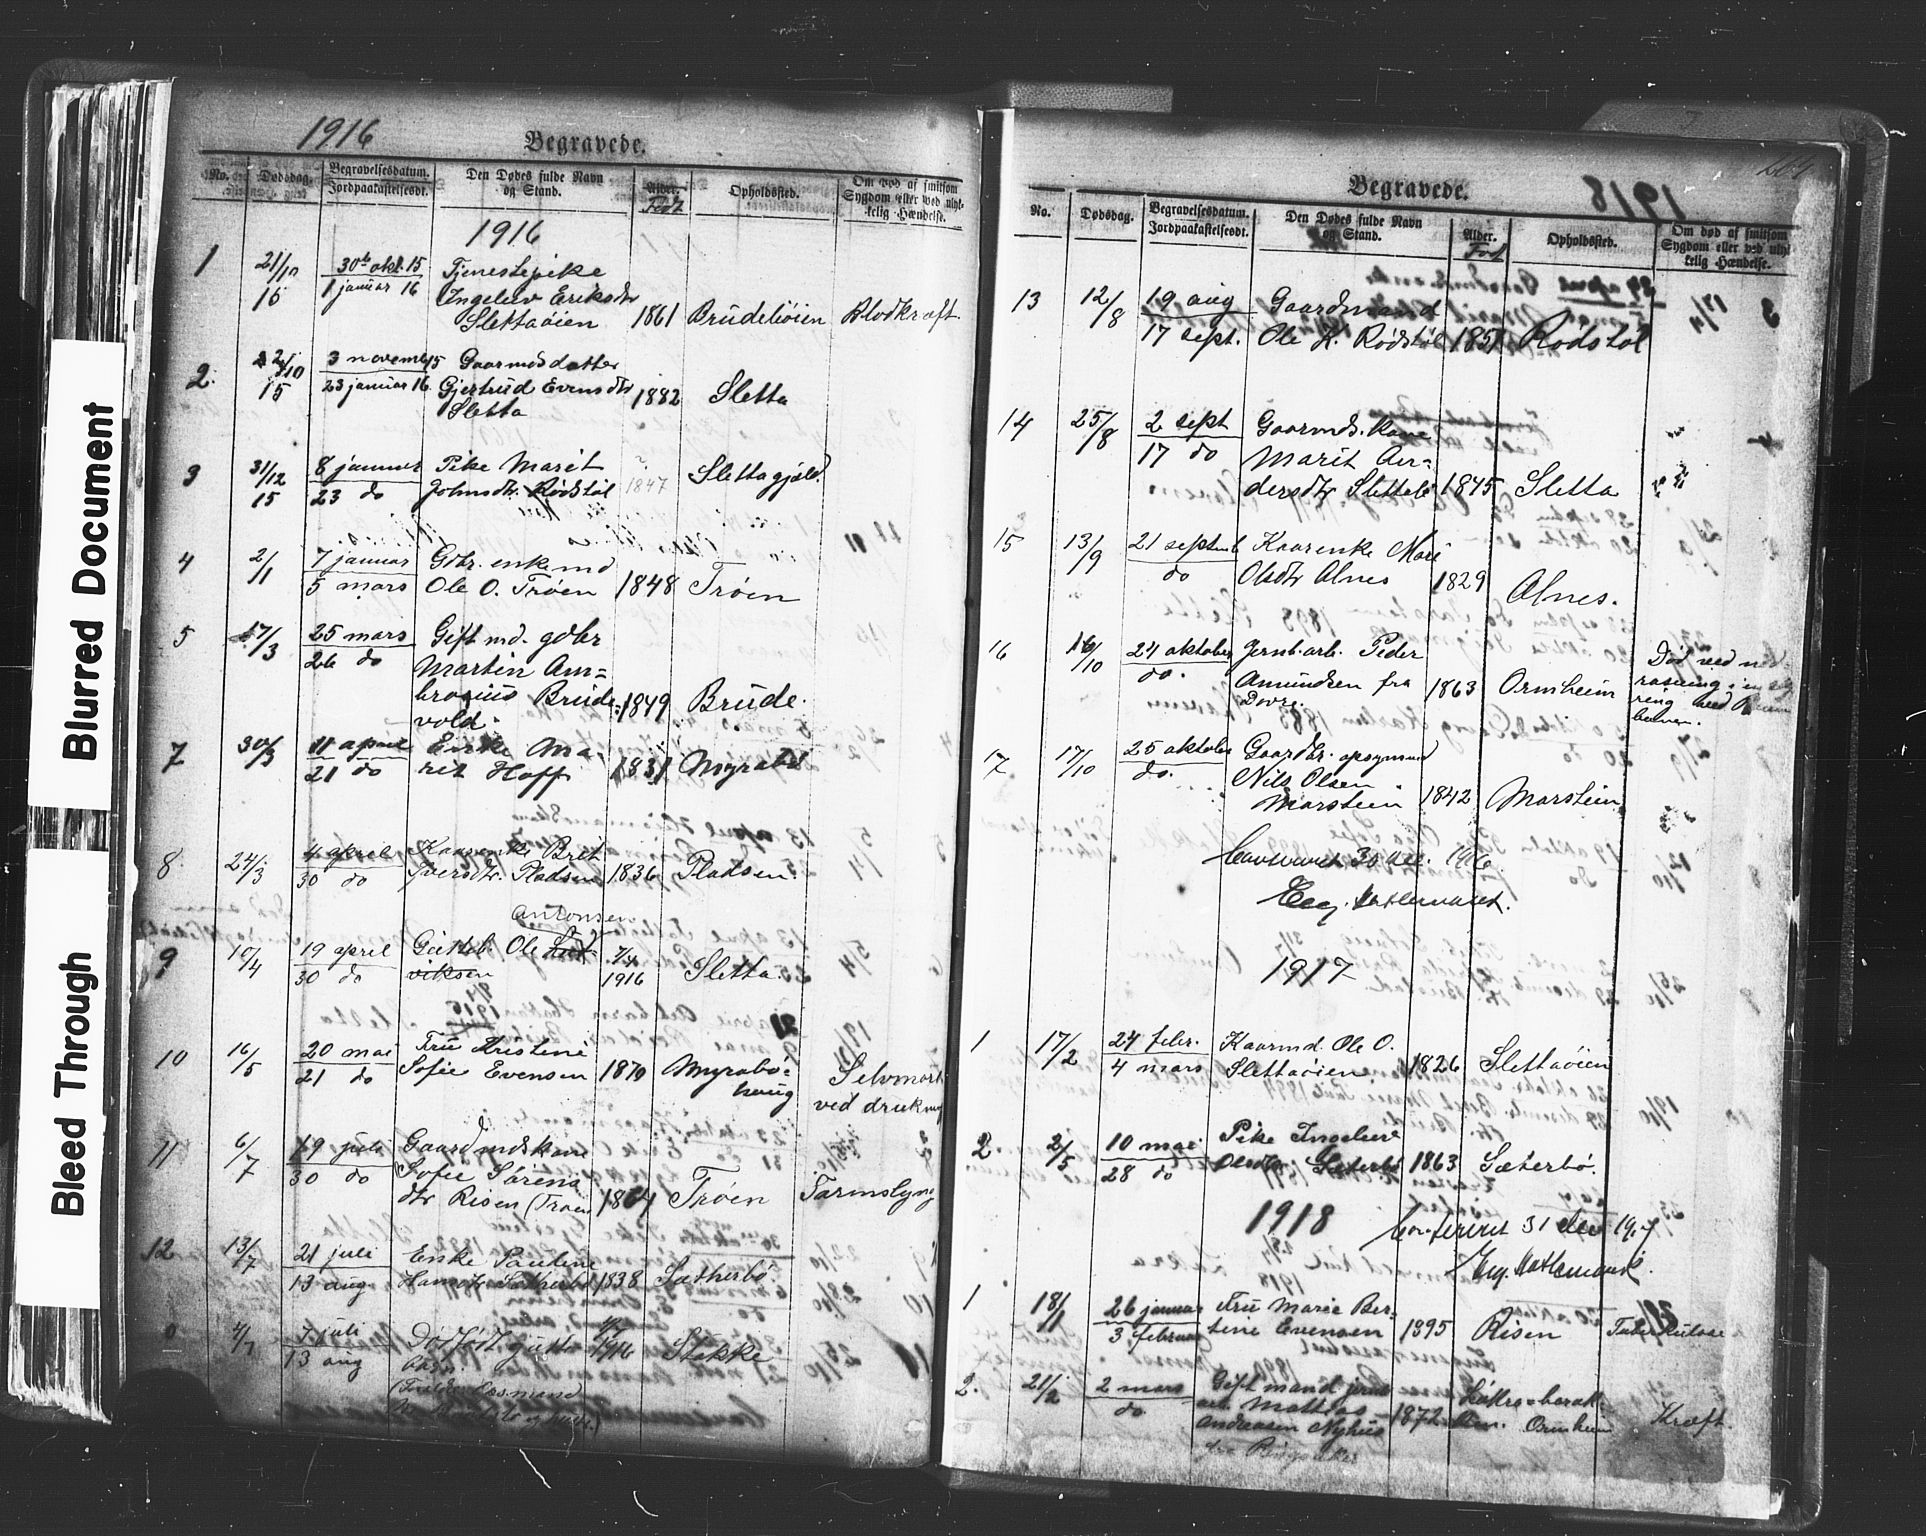 Blurred Document
Bleed Through
1916
Begravede.
No.
Dødsdag.
Begravelsesdatum.
Jordpaakastelsesdt.
Den Dødes fulde Navn
og Stand.
Alder.
Født
Opholdssted.
Om død af smitsom
Sygdom eller ved ulyk-
kelig Hændelse.
1916
1
21/10
15
30te okt. 15
1 januar 16
Tjenestepike
Ingeluv Eriksdtr
Slettaøien
1861
Brudeliøien
Blodkræft
2.
15
3 novemb 15
23 januar 16
Gaarmdsdatter
Gjertrud Evensdtr
Sletta
1882
Sletta
3
31/12
15
8 januar
23 do
Pike Marit
Johnsdtr. Rødstøl
1847
Slettagjeld.
4
2/1
7 januar
5 mars
Gbr. enkemd
Ole O. Trøen
1848
Trøen
5
17/3
25 mars
26 do
Gift md. gdbr
Martin Am-
brosius Brude-
vold.
1849
Brude.
7
30/3
11 april
21 do
Enke Ma-
rit Hoff
1831
Myrabø
8
24/3
4 april
30 do
Kaarenke Brit
Iversdtr. Pladsen
1836
Pladsen.
9
10/4
19 april
30 do
Antonsen
Gutteb. Ole
viksen
7/4
1916
Sletta.
10
16/5
20 mai
21 do
Fru Kristine
Sofie Evensen
1870
Myrabø-
haug
Selvmord
ved drukning
11
6/7
19 juli
30 do
Gaardmdskone
Sofie Sørens
dtr Risen (Trøen
1864
Trøen
Tarmslyng
12
13/7
21 juli
13 aug
Enke Pauline
Hansdtr Sætherbø
1838
Sætherbø.
4/7
7 juli
13 aug
Dødfødt gutte
barn.
1916
Stokke
Begravede.
1918
No.
Dødsdag.
Begravelsesdatum.
Jordpaakastelsesdt.
Den Dødes fulde Navn
og Stand.
Alder.
Født
Opholdssted.
Om død af smitsom
Sygdom eller ved ulyk-
kelig Hændelse.
13
12/8
19 aug
17 sept.
Gaardmand
Ole K. Rødstøl
1851
Rødstøl
14
25/8
2 sept
17 do
Gaarmds. kone
Marit An-
dersdtr Slettelø
1845
Sletta
15
13/9
21 septemb
do
Kaarenke Mari
Olsdtr Alnes
1829
Alnes.
16
16/10
24 oktober
do.
Jernb. arb. Peder
Amundsen fra
Dovre.
1863
Ormheim
Død ved ned-
rasning i en
17
17/10
25 oktober
do.
Gaardbr. opsynsmd
Nils Olsen
Marstein
1842
Marstein
Conferert 30 dec. 1916.
1917
1
17/2
24 febr.
4 mars
Kaarmd. Ole O.
Slettaøien
1826
Slettaøien
2
2/5
10 mai
28 do
Pike Ingeborg
Olsdtr Sæterbø
1863
Sæterbø.
1918
Conferert 31 dec 1917
1
18/1
26 januar
3 februar
Fru Marie Ber-
tine Evensen
1895
Risen
Tuberkulose
2.
21/2
2 mars
do
Gift mand jern
arb. Mathias
Andreasen Nyhus
fra Ringsaker
1872
Ormheim
Kræft.